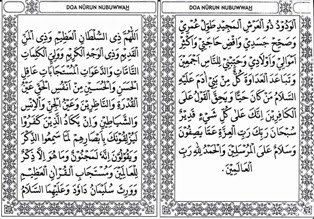 DOA NÛRUN NUBUWWAH
اَللّٰهُمَّ ذِي السُّلْطَانِ الْعَظِيْمِ وَذِي الْمَنِّ
الْقَدِيْمِ وَذِي الْوَجْهِ الْكَرِيْمِ وَوَلِيِّ الْكَلِمَاتِ
التَّامَّاتِ وَالدَّعَوَاتِ الْمُسْتَجَابَاتِ عَاقِلِ
الْحَسَنِ وَالْحُسَيْنِ مِنْ اَنْفُسِ الْحَقِّ عَيْنِ
الْقُدْرَةِ وَالنَّاظِرِيْنَ وَعَيْنِ الْجِنِّ وَالْاِنْسِ
وَالشَّيَاطِيْنِ وَاِنْ يَكَادُ الَّذِيْنَ كَفَرُوْا
لَيُزْلِقُوْنَكَ بِاَبْصَارِهِمْ لَمَّا سَمِعُوا الذِّكْرَ
وَيَقُوْلُوْنَ اِنَّهُ لَمَجْنُوْنٌ وَمَا هُوَ اِلَّا ذِكْرٌ
لِلْعَالَمِيْنَ وَمُسْتَجَابُ الْقُرْآنِ الْعَظِيْمِ
وَوَرِثَ سُلَيْمَانُ دَاوُدَ وَعَلَيْهِمَا السَّلَامُ
DOA NÛRUN NUBUWWAH
الْوَدُوْدُ ذُو الْعَرْشِ الْمَجِيْدِ طَوِّلْ عُمْرِيْ
وَصَحِّحْ جَسَدِيْ وَاقْضِ حَاجَتِيْ وَاَكْثِرْ
اَمْوَالِيْ وَاَوْلَادِيْ وَحَبِّبْنِيْ لِلنَّاسِ اَجْمَعِيْنَ
وَتَبَاعَدِ الْعَدَاوَةَ كُلَّهَا مِنْ بَنِيْ اٰدَمَ عَلَيْهِ
السَّلَامُ مَنْ كَانَ حَيًّا وَيَحِقَّ الْقَوْلُ عَلَى
الْكَافِرِيْنَ اِنَّكَ عَلَى كُلِّ شَيْءٍ قَدِيْرٌ
سُبْحَانَ رَبِّكَ رَبِّ الْعِزَّةِ عَمَّا يَصِفُوْنَ
وَسَلَامٌ عَلَى الْمُرْسَلِيْنَ وَالْحَمْدُ لِلّٰهِ رَبِّ
الْعَالَمِيْنَ.